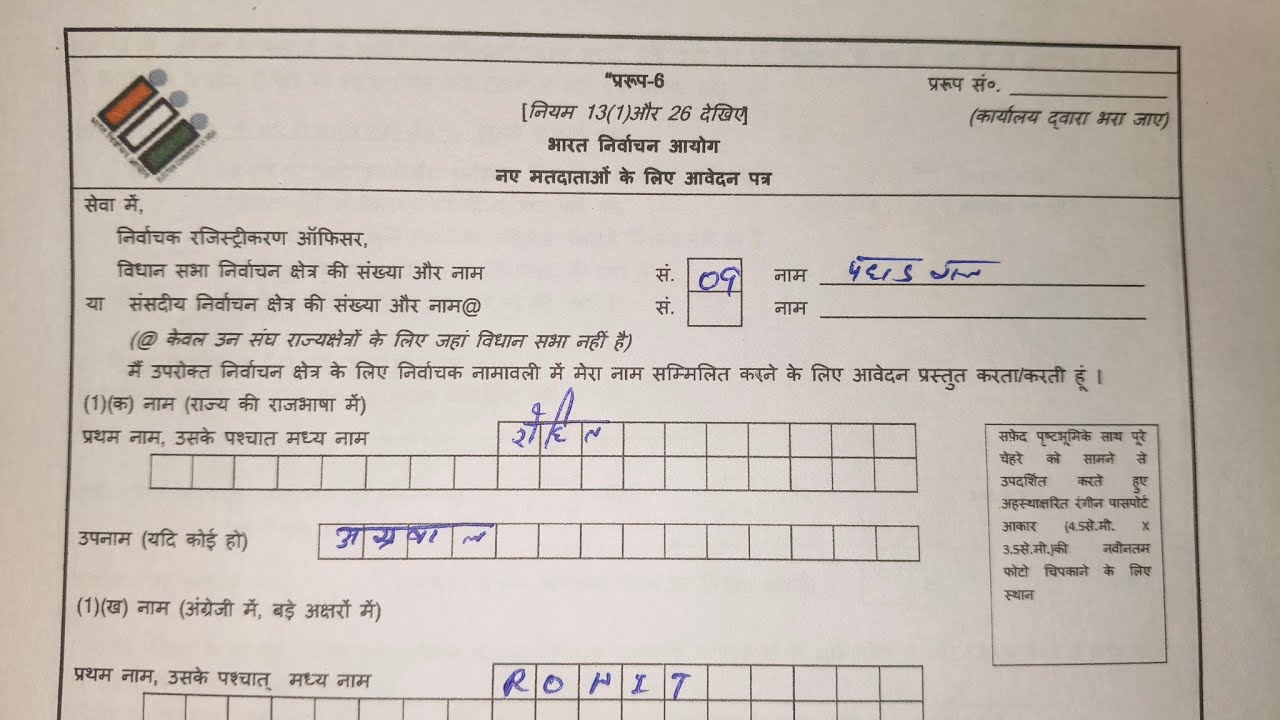 "प्ररूप-6
प्ररूप सं०.
[नियम 13(1)और 26 देखिए]
(कार्यालय द्वारा भरा जाए)
भारत निर्वाचन आयोग
नए मतदाताओं के लिए आवेदन पत्र
सेवा में,
निर्वाचक रजिस्ट्रीकरण ऑफिसर,
विधान सभा निर्वाचन क्षेत्र की संख्या और नाम सं. 09 नाम
या संसदीय निर्वाचन क्षेत्र की संख्या और नाम@ सं. नाम
(@ केवल उन संघ राज्यक्षेत्रों के लिए जहां विधान सभा नहीं है)
मैं उपरोक्त निर्वाचन क्षेत्र के लिए निर्वाचक नामावली में मेरा नाम सम्मिलित करने के लिए आवेदन प्रस्तुत करता/करती हूं ।
(1)(क) नाम (राज्य की राजभाषा में)
प्रथम नाम, उसके पश्चात मध्य नाम रोहित
उपनाम (यदि कोई हो) अग्रवाल
(1)(ख) नाम (अंग्रेजी में, बड़े अक्षरों में)
प्रथम नाम, उसके पश्चात् मध्य नाम ROHIT
सफ़ेद पृष्टभूमिके साथ पूरे
चेहरे को सामने से
उपदर्शित करते हुए
अहस्थाक्षरित रंगीन पासपोर्ट
आकार (4.5से.मी. X
3.5से.मी.)की नवीनतम
फोटो चिपकाने के लिए
स्थान